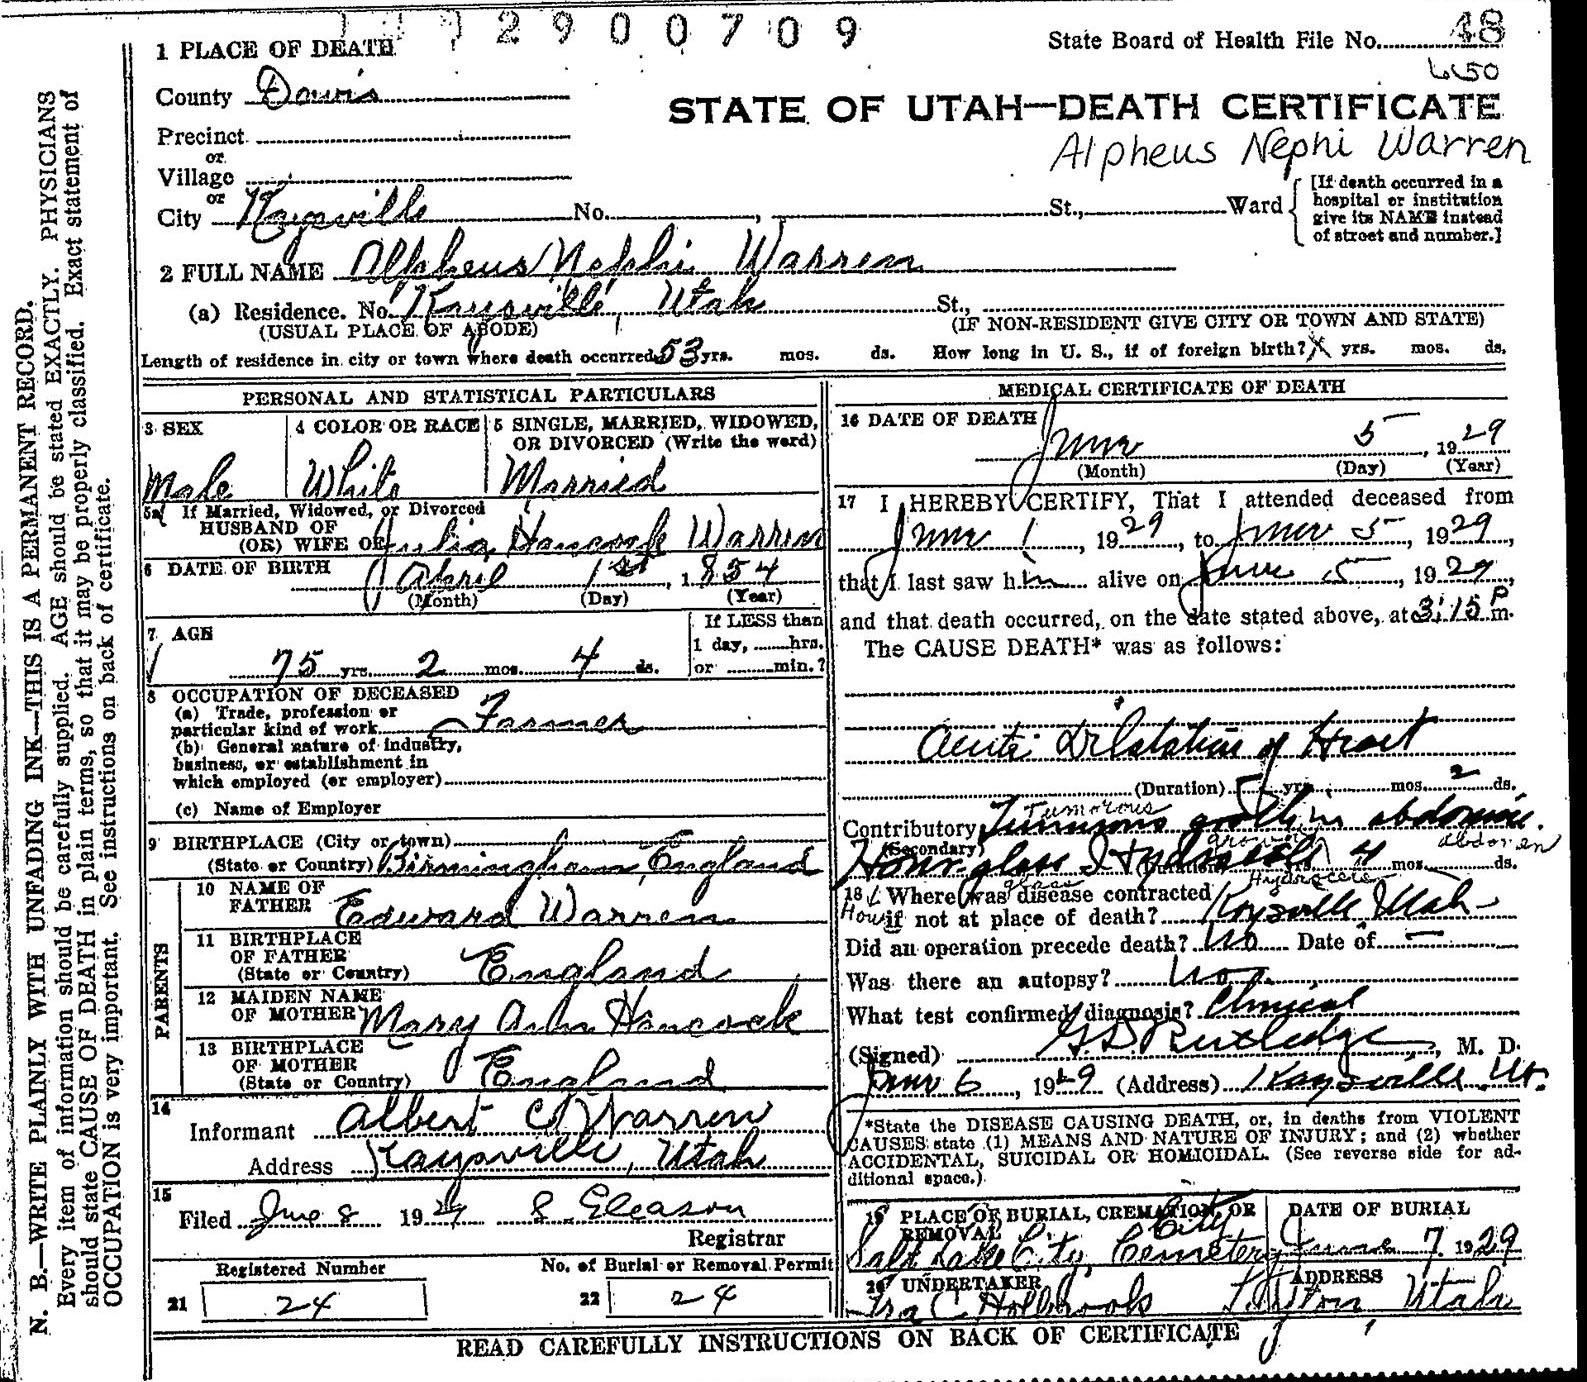 2900709
1 PLACE OF DEATH
State Board of Health File No. 48
County Davis
STATE OF UTAH—DEATH CERTIFICATE
Precinct
Alpheus Nephi Warren
or
Village
or
City Kaysville No. , St., Ward
[If death occurred in a
hospital or institution
give its NAME instead
of street and number.]
2 FULL NAME Alpheus Nephi Warren
(a) Residence. No. Kaysville, Utah St.,
(USUAL PLACE OF ABODE) (IF NON-RESIDENT GIVE CITY OR TOWN AND STATE)
Length of residence in city or town where death occurred 53 yrs. mos. ds. How long in U. S., if of foreign birth? X yrs. mos. ds.
PERSONAL AND STATISTICAL PARTICULARS
3 SEX 4 COLOR OR RACE 5 SINGLE, MARRIED, WIDOWED,
OR DIVORCED (Write the word)
Male White Married
5a If Married, Widowed, or Divorced
HUSBAND OF
(OR) WIFE OF Julia Hancock Warren
6 DATE OF BIRTH April 1st, 1854
(Month) (Day) (Year)
7 AGE
75 yrs. 2 mos. 4 ds.
If LESS than
1 day, hrs.
or min.?
8 OCCUPATION OF DECEASED
(a) Trade, profession or
particular kind of work Farmer
(b) General nature of industry,
business, or establishment in
which employed (or employer)
(c) Name of Employer
9 BIRTHPLACE (City or town)
(State or Country) Birmingham, England
PARENTS
10 NAME OF
FATHER Edward Warren
11 BIRTHPLACE
OF FATHER
(State or Country) England
12 MAIDEN NAME
OF MOTHER Mary Ann Hancock
13 BIRTHPLACE
OF MOTHER
(State or Country) England
14
Informant Albert C. Warren
Address Kaysville, Utah
15
Filed June 8 1929 S Gleason
Registrar
Registered Number No. of Burial or Removal Permit
21 24 22 24
MEDICAL CERTIFICATE OF DEATH
16 DATE OF DEATH
June 5, 1929
(Month) (Day) (Year)
17 I HEREBY CERTIFY, That I attended deceased from
June 1, 1929, to June 5, 1929,
that I last saw him alive on June 5, 1929,
and that death occurred, on the date stated above, at 3:15 P m.
The CAUSE DEATH* was as follows:
Acute Dilatation of Heart
(Duration) yrs. mos. 2 ds.
Tumorous
Contributory Tumorous growth in abdomen.
(Secondary) growth abdomen
Hour glass Hydrocele (Duration) 4 mos. ds.
glass Hydrocele
18 Where was disease contracted
Hour if not at place of death? Kaysville Utah
Did an operation precede death? No Date of —
Was there an autopsy? No.
What test confirmed diagnosis? Clinical
(Signed) G. D. Rutledge, M. D.
June 6, 1929 (Address) Kaysville Ut.
*State the DISEASE CAUSING DEATH, or, in deaths from VIOLENT
CAUSES state (1) MEANS AND NATURE OF INJURY; and (2) whether
ACCIDENTAL, SUICIDAL OR HOMICIDAL. (See reverse side for ad-
ditional space.)
19 PLACE OF BURIAL, CREMATION, OR
REMOVAL City
Salt Lake City, Cemetery
DATE OF BURIAL
June 7 1929
20 UNDERTAKER ADDRESS
Ira C. Holbrook Layton, Utah
READ CAREFULLY INSTRUCTIONS ON BACK OF CERTIFICATE
N. B.—WRITE PLAINLY WITH UNFADING INK—THIS IS A PERMANENT RECORD.
Every item of information should be carefully supplied. AGE should be stated EXACTLY. PHYSICIANS
should state CAUSE OF DEATH in plain terms, so that it may be properly classified. Exact statement of
OCCUPATION is very important. See instructions on back of certificate.